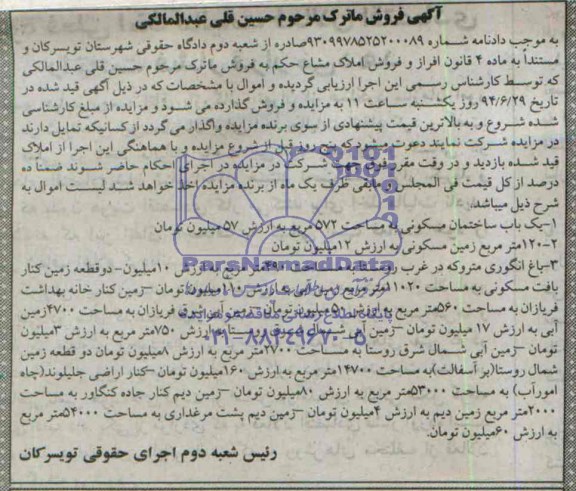 آگهی فروش ماترک مرحوم حسین قلی عبدالمالکی
به موجب دادنامه شماره ۹۳۰۹۹۷۸۵۲۵۲۰۰۰۸۹صادره از شعبه دوم دادگاه حقوقی شهرستان تویسرکان و
مستنداً به ماده ۴ قانون افراز و فروش املاک مشاع حکم به فروش ماترک مرحوم حسین قلی عبدالمالکی
که توسط کارشناس رسمی این اجرا ارزیابی گردیده و اموال با مشخصات که در ذیل آگهی قید شده در
تاریخ ۹۴/۶/۲۹ روز یکشنبه ساعت ۱۱ به مزایده و فروش گذارده می شود و مزایده از مبلغ کارشناسی
شده شروع و به بالاترین قیمت پیشنهادی از سوی برنده مزایده واگذار می گردد از کسانیکه تمایل دارند
در مزایده شرکت نمایند دعوت میشود که پنج روز قبل از شروع مزایده و با هماهنگی این اجرا از املاک
قید شده بازدید و در وقت مقرر فوق جهت شرکت در مزایده در اجرای احکام حاضر شوند ضمناً ده
درصد از کل قیمت فی المجلس و مابقی ظرف یک ماه از برنده مزایده اخذ خواهد شد لیست اموال به
شرح ذیل میباشد.
۱-یک باب ساختمان مسکونی به مساحت ۵۷۲ مربع به ارزش ۵۷ میلیون تومان
۲-۱۲۰ متر مربع زمین مسکونی به ارزش ۱۲میلیون تومان
ParsNamadData
۳-باغ انگوری متروکه در غرب روستا به مساحت مربع به ارزش ۱۰میلیون-دوقطعه زمین کنار
بافت مسکونی به مساحت ۱۱۰۲۰متر مربع زمین آبی به ارزش میلیون تومان –زمین کنار خانه بهداشت
فریازان به مساحت ۵۶۰متر مربع به ارزش میلیون تومان فریازان به مساحت ۴۷۰۰زمین
آبی به ارزش ۱۷ میلیون تومان –زمین آبی شمال روستا به ارزش ۷۵۰متر مربع به ارزش ۳میلیون
۰۲۱-۸۸۳۴۹۶۷۰-۵
تومان –زمین آبی شمال شرق روستا به مساحت ۲۷۰۰متر مربع به ارزش ۸میلیون تومان دو قطعه زمین
شمال روستا(بر آسفالت)به مساحت ۱۴۷۰۰متر مربع به ارزش ۱۶۰میلیون تومان –کنار اراضی جلیلوند(چاه
امورآب) به مساحت ۵۳۰۰۰متر مربع به ارزش ۸۰میلیون تومان –زمین دیم کنار جاده کنگاور به مساحت
۲۰۰۰متر مربع زمین دیم به ارزش ۴میلیون تومان –زمین دیم پشت مرغداری به مساحت ۵۴۰۰۰متر مربع
به ارزش ۶۰میلیون تومان.
رئیس شعبه دوم اجرای حقوقی تویسرکان